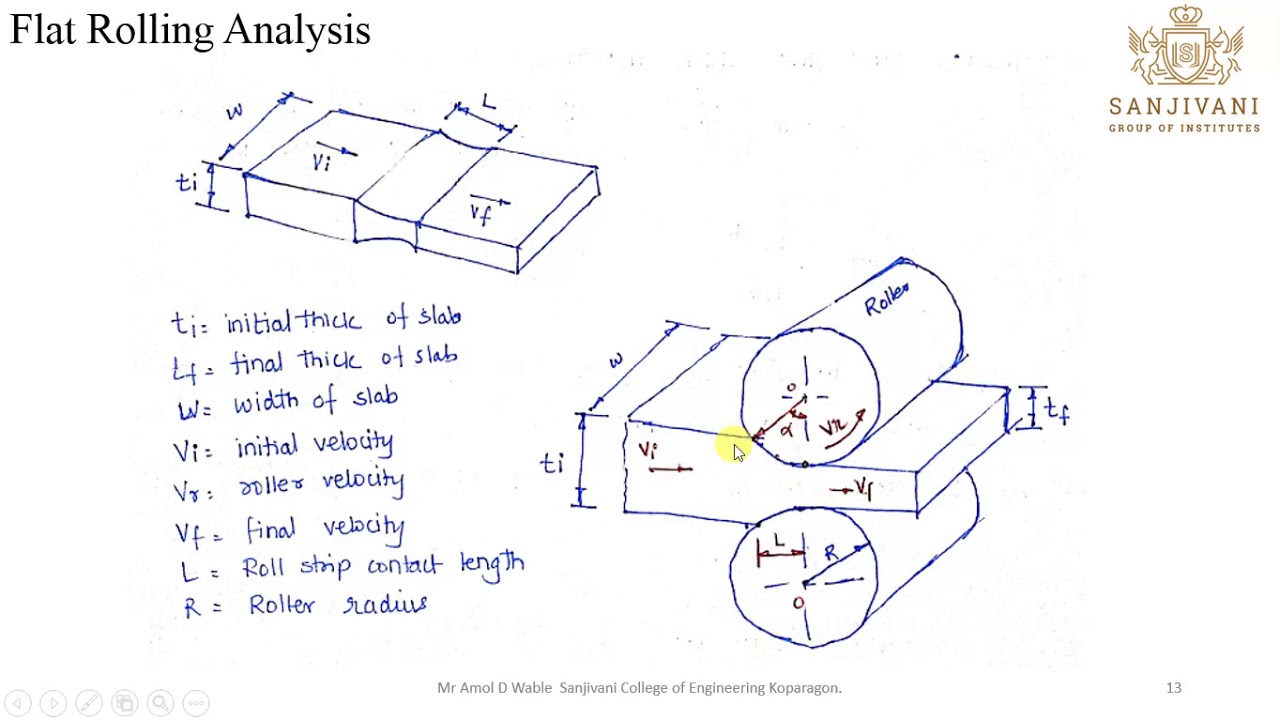 Flat Rolling Analysis
SANJIVANI
GROUP OF INSTITUTES
W
L
ti
Vi
Vf
ti = initial thick of slab
tf = final thick of slab
W = width of slab
Vi = initial velocity
Vr = roller velocity
Vf = final velocity
L = Roll strip contact length
R = Roller radius
Roller
W
O
α
Vr
tf
ti
Vi
Vf
L
R
O
Mr Amol D Wable Sanjivani College of Engineering Koparagon.
13